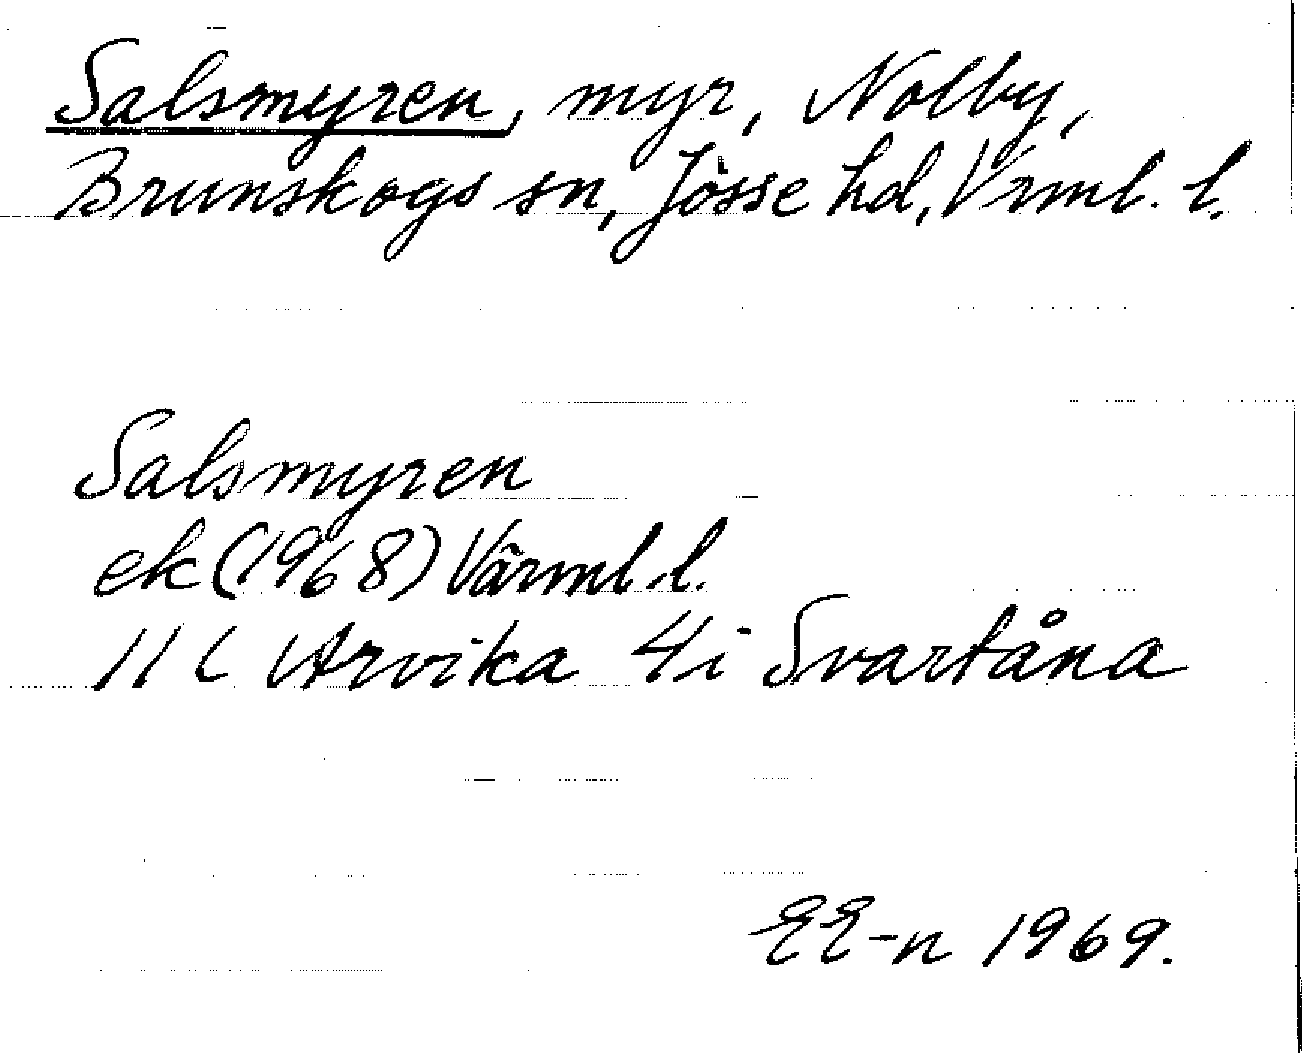 Salsmyren, myr, Nolby,
Brunskogs sn, Jösse hd, Vrml. l.
Salsmyren
ek (1968) Värml. l.
11 C Arvika 4i Svartåna
EE-n 1969.